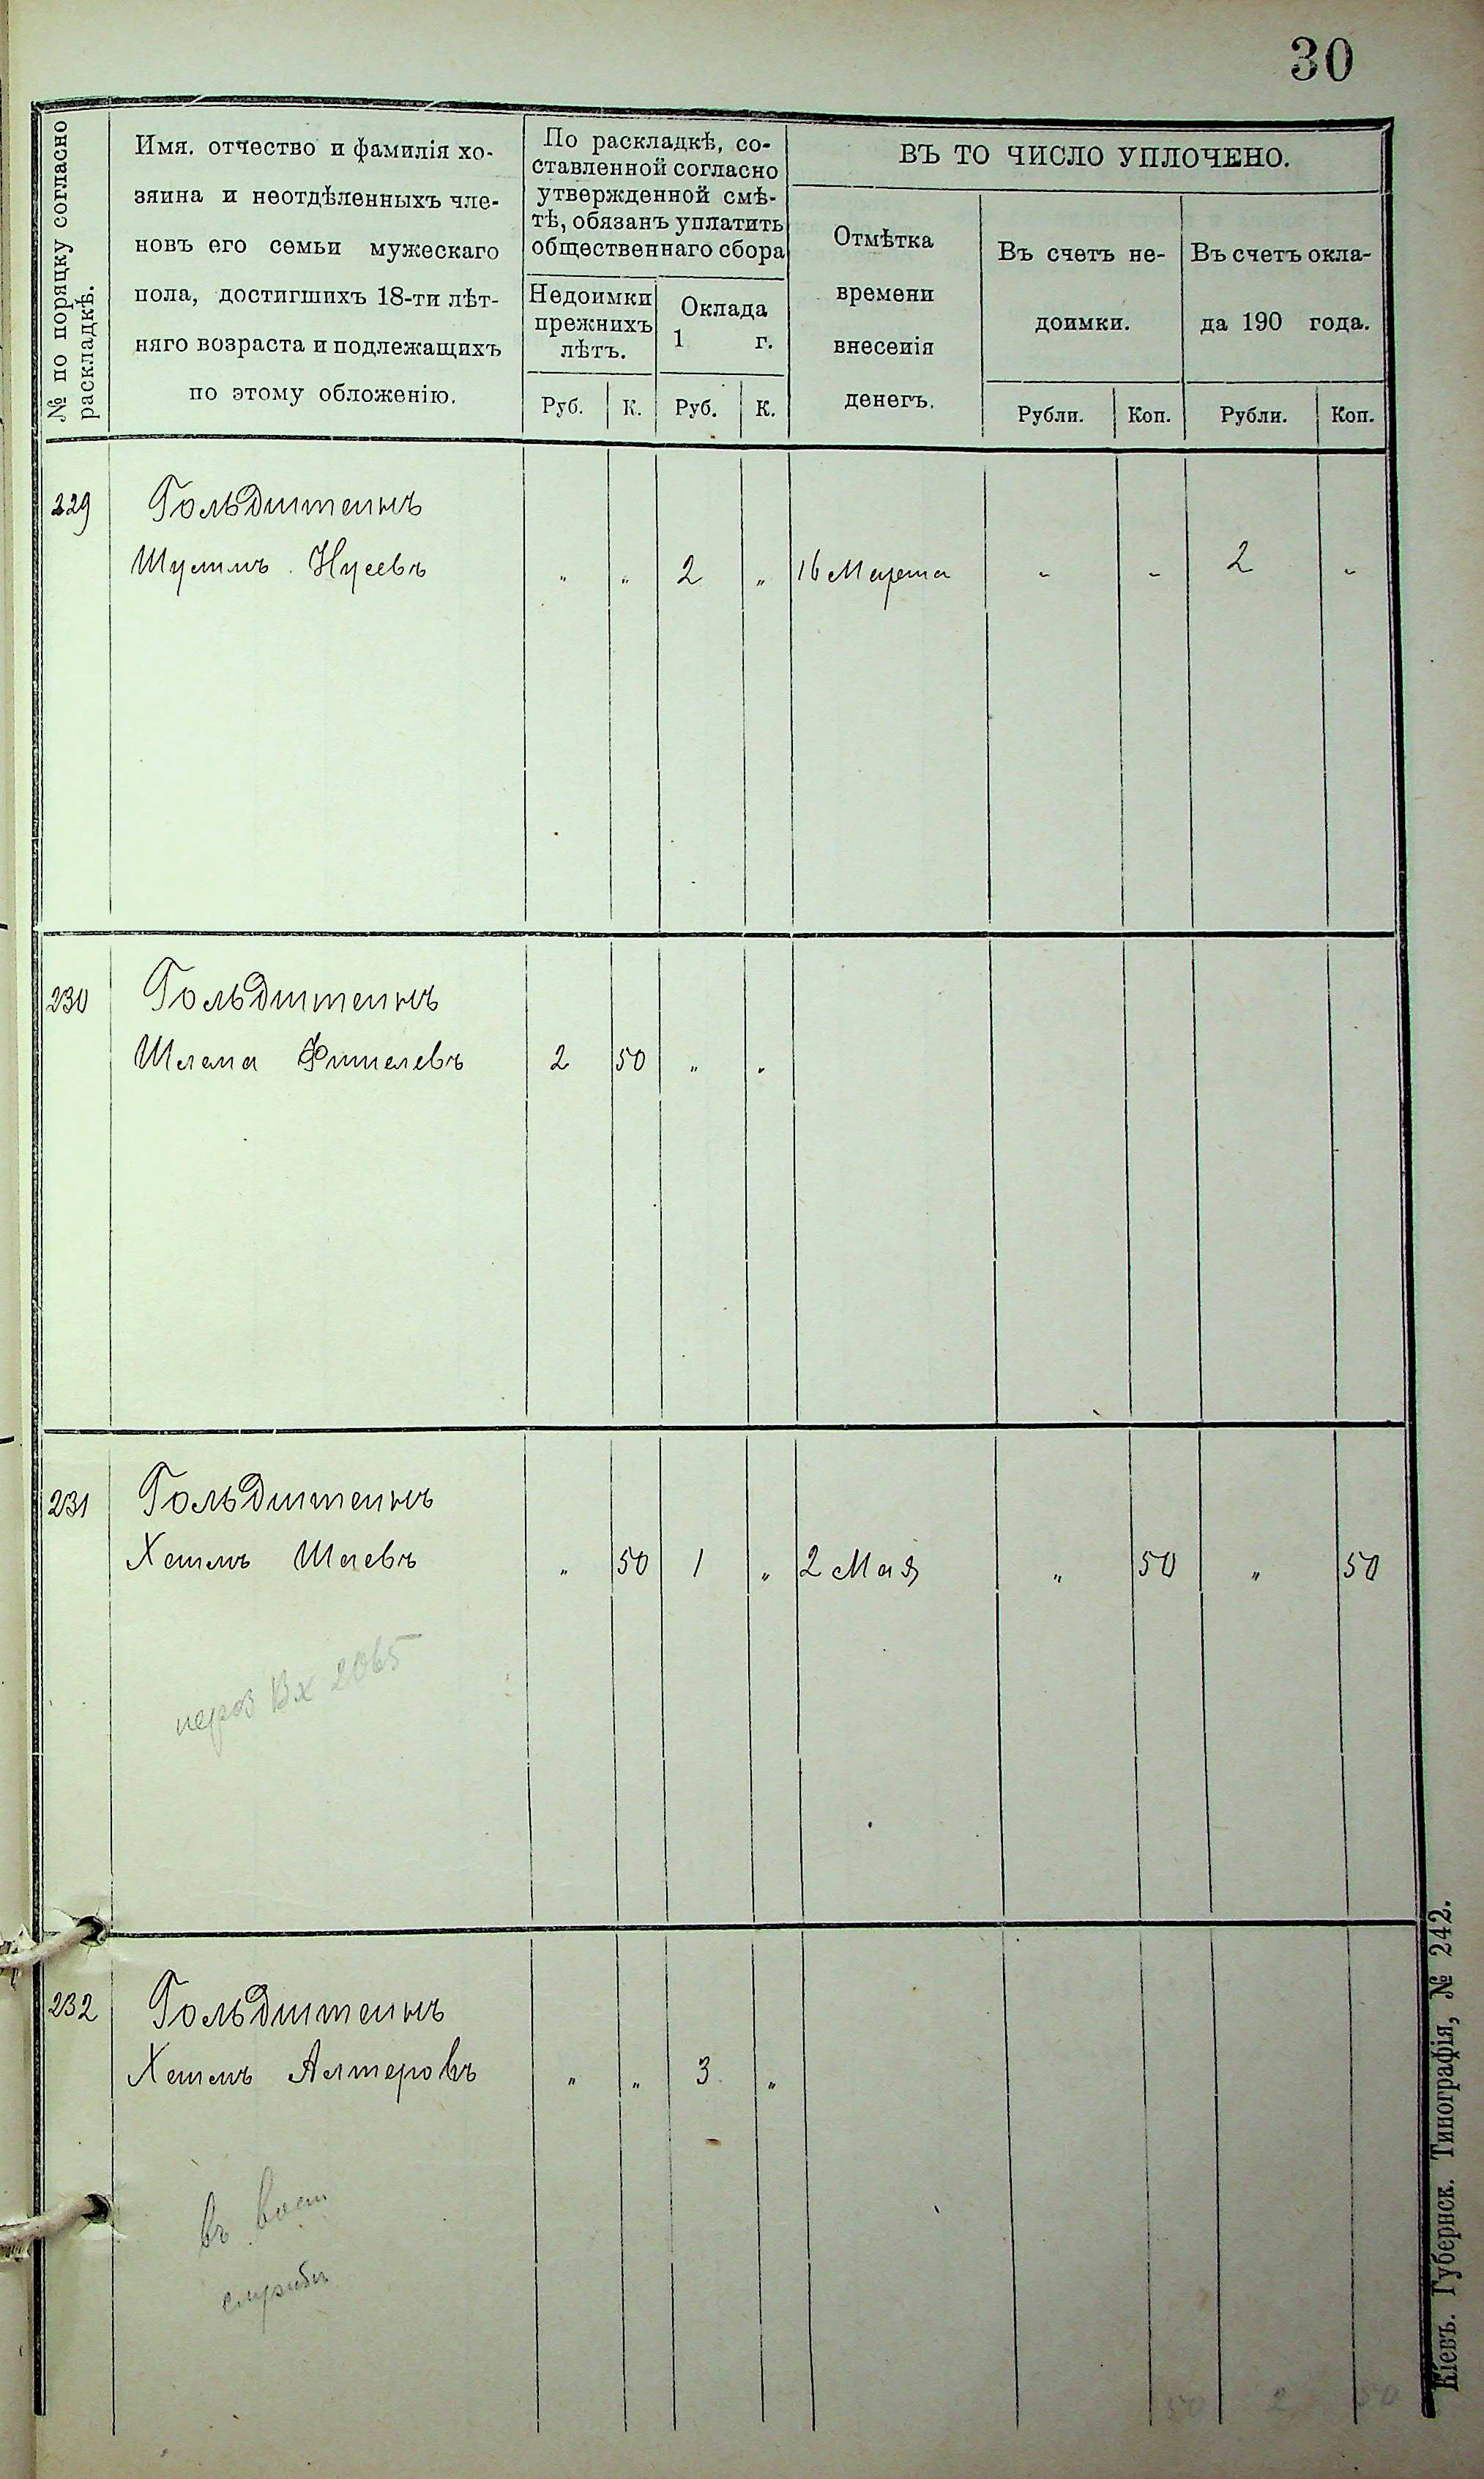 30
№ по порядку согласно
раскладкѣ.
Имя. отчество и фамилія хо-
зяина и неотдѣленныхъ чле-
новъ его семьи мужескаго
пола, достигшихъ 18-ти лѣт-
няго возраста и подлежащихъ
по этому обложенію.
По раскладкѣ, со-
ставленной согласно
утвержденной смѣ-
тѣ, обязанъ уплатить
общественнаго сбора
Недоимки
прежнихъ
лѣтъ.
Оклада
1 г.
Руб. К. Руб. К.
ВЪ ТО ЧИСЛО УПЛОЧЕНО.
Отмѣтка
времени
внесенія
денегъ.
Въ счетъ не-
доимки.
Въ счетъ окла-
да 190 года.
Рубли. Коп. Рубли. Коп.
229 Гольдштейнъ
Шулимъ Нусевъ " " 2 " 16 Марта " " 2 "
230 Гольдштейнъ
Шлема Фишелевъ 2 50 " "
231 Гольдштейнъ
Хаимъ Шаевъ " 50 1 " 2 Мая " 50 " 50
Вх 2065
232 Гольдштейнъ
Хаимъ Алтеровъ " " 3 "
въ воен
службѣ
50 2 50
Кіевъ. Губернск. Типографія, № 242.